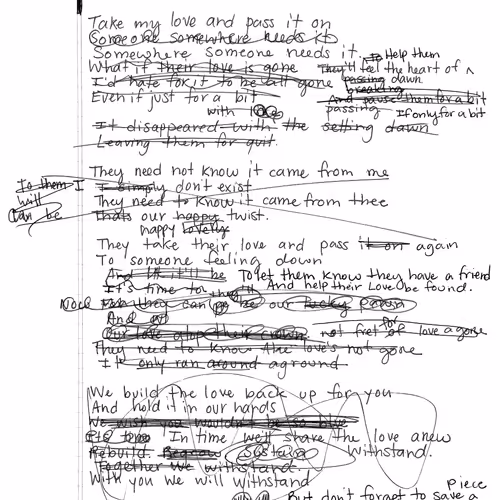 Take my love and pass it on
Someone somewhere needs it
Somewhere someone needs it. to Help them
What if their love is gone They'll feel the heart of
I'd hate for it to be all gone passing dawn
breaking
Even if just for a bit And pause them for a bit
with passing If only for a bit
It disappeared with the setting dawn
Leaving them for quit.
They need not know it came from me
To them I I simply don't exist
will They need to know it came from thee
Can be thats our happy twist.
happy lovely
They take their love and pass it on again
To someone feeling down
And let it'll be To let them know they have a friend
It's time to And help their Love be found.
they can be our lucky
And
Our love atop their crown not fret of for love a gone
They need to know the love's not gone
It only ran around aground
We build the love back up for you
And hold it in our hands
We wish you wouldn't be so blue
In time we'll share the love anew
Rebuild. Sustain withstand.
Together we withstand.
With you We will withstand
Piece
But don't forget to save a